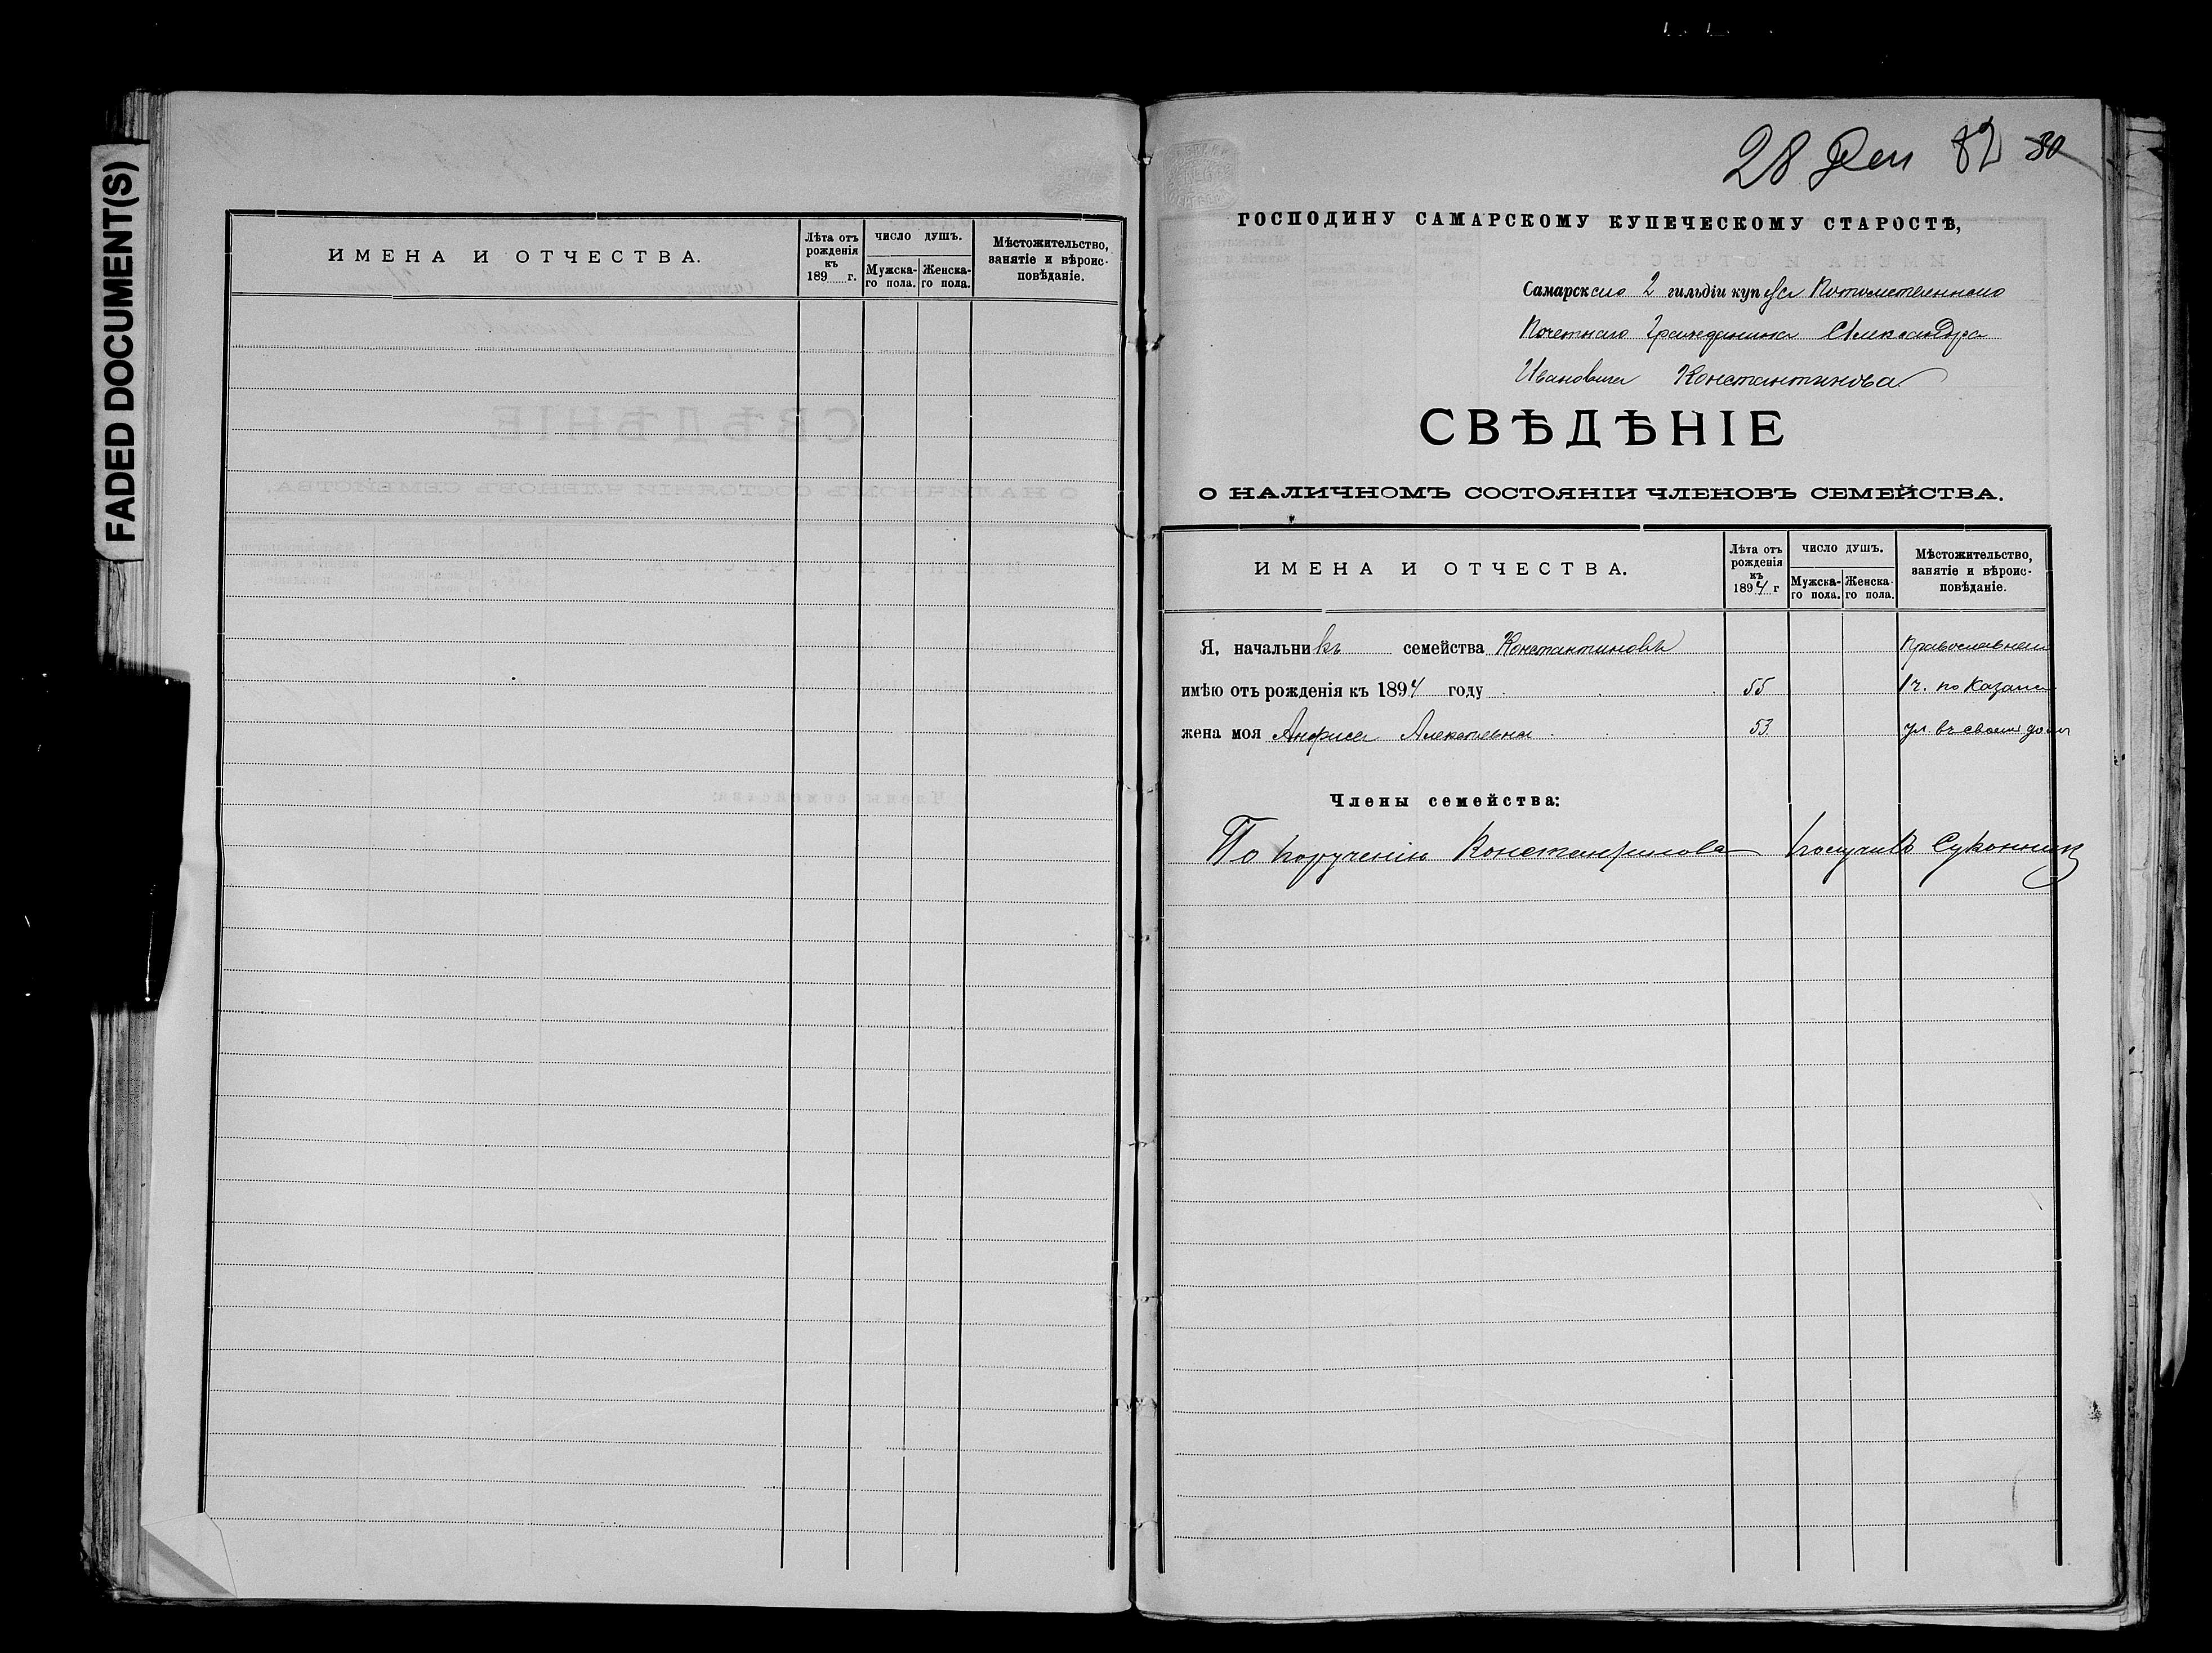 FADED DOCUMENT(S)
ИМЕНА И ОТЧЕСТВА.
Лѣта отъ рожденія къ 189 г.
ЧИСЛО ДУШЪ.
Мужска-го пола.
Женска-го пола.
Мѣстожительство, занятіе и вѣроис-повѣданіе.
28 Дек 82 30
ГОСПОДИНУ САМАРСКОМУ КУПЕЧЕСКОМУ СТАРОСТѢ,
Самарскаго 2 гильдіи купца Потомственнаго
Почетнаго Гражданина Александра
Ивановича Константинова
СВѢДѢНІЕ
О НАЛИЧНОМЪ СОСТОЯНІИ ЧЛЕНОВЪ СЕМЕЙСТВА.
ИМЕНА И ОТЧЕСТВА.
Лѣта отъ рожденія къ 1894 г
ЧИСЛО ДУШЪ.
Мужска-го пола.
Женска-го пола.
Мѣстожительство, занятіе и вѣроис-повѣданіе.
Я, начальникъ семейства Константиновъ Православнаго
имѣю отъ рожденія къ 1894 году 55 1 ч. по Казанс
жена моя Анфиса Алексѣевна 53 ул въ своемъ домѣ
Члены семейства:
По порученію Константинова получилъ